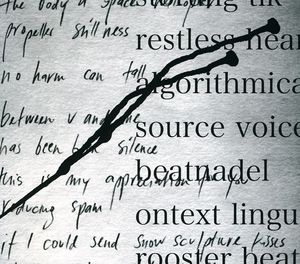 the body a space
propeller stillness
no harm can fall
between v and me
has been silence
this is my appreciation for you
reducing spam
if I could send snow sculpture kisses
restless hear
algorithmica
source voice
beatnadel
ontext lingu
rooster beat